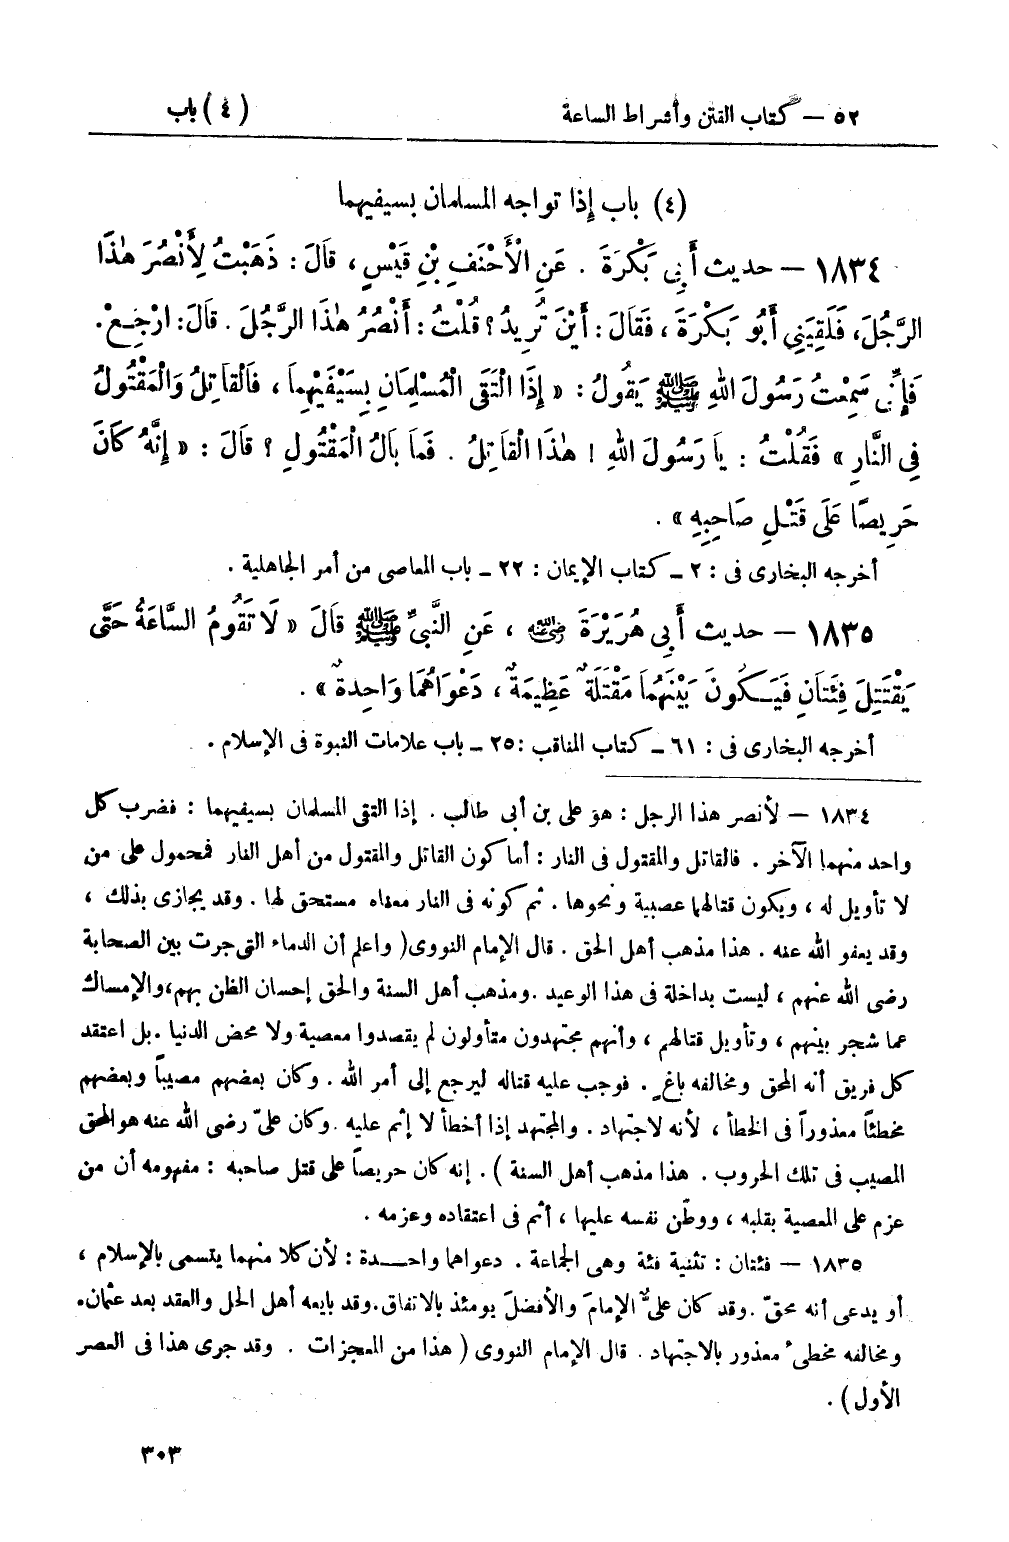 ٥٢ — كتاب الفتن وأشراط الساعة (٤) باب
(٤) باب إذا تواجه المسلمان بسيفيهما
١٨٣٤ — حديث أَبِي بَكْرَةَ . عَنِ الْأَحْنَفِ بْنِ قَيْسٍ ، قَالَ : ذَهَبْتُ لِأَنْصُرَ هٰذَا
الرَّجُلَ، فَلَقِيَنِي أَبُو بَكْرَةَ ، فَقَالَ : أَيْنَ تُرِيدُ ؟ قُلْتُ : أَنْصُرُ هٰذَا الرَّجُلَ . قَالَ : ارْجِعْ .
فَإِنِّي سَمِعْتُ رَسُولَ اللهِ ﷺ يَقُولُ : « إِذَا الْتَقَى الْمُسْلِمَانِ بِسَيْفَيْهِمَا ، فَالْقَاتِلُ وَالْمَقْتُولُ
فِي النَّارِ » فَقُلْتُ : يَا رَسُولَ اللهِ ! هٰذَا الْقَاتِلُ . فَمَا بَالُ الْمَقْتُولِ ؟ قَالَ : « إِنَّهُ كَانَ
حَرِيصًا عَلَى قَتْلِ صَاحِبِهِ » .
أخرجه البخارى فى : ٢ ـ كتاب الإيمان : ٢٢ ـ باب المعاصى من أمر الجاهلية .
١٨٣٥ — حديث أَبِي هُرَيْرَةَ رضي الله عنه ، عَنِ النَّبِيِّ ﷺ قَالَ « لَا تَقُومُ السَّاعَةُ حَتَّى
يَقْتَتِلَ فِئَتَانِ فَيَكُونَ بَيْنَهُمَا مَقْتَلَةٌ عَظِيمَةٌ ، دَعْوَاهُمَا وَاحِدَةٌ » .
أخرجه البخارى فى : ٦١ ـ كتاب المناقب : ٢٥ ـ باب علامات النبوة فى الإسلام .
١٨٣٤ — لأنصر هذا الرجل : هو على بن أبى طالب . إذا التقى المسلمان بسيفيهما : فضرب كل
واحد منهما الآخر . فالقاتل والمقتول فى النار : أما كون القاتل والمقتول من أهل النار فمحمول على من
لا تأويل له ، ويكون قتالهما عصبية ونحوها . ثم كونه فى النار معناه مستحق لها . وقد يجازى بذلك ،
وقد يعفو الله عنه . هذا مذهب أهل الحق . قال الإمام النووى ( واعلم أن الدماء التى جرت بين الصحابة
رضى الله عنهم ، ليست بداخلة فى هذا الوعيد . ومذهب أهل السنة والحق إحسان الظن بهم، والإمساك
عما شجر بينهم ، وتأويل قتالهم ، وأنهم مجتهدون متأولون لم يقصدوا معصية ولا محض الدنيا . بل اعتقد
كل فريق أنه المحق ومخالفه باغٍ . فوجب عليه قتاله ليرجع إلى أمر الله . وكان بعضهم مصيباً وبعضهم
مخطئاً معذوراً فى الخطأ ، لأنه لاجتهاد . والمجتهد إذا أخطأ لا إثم عليه . وكان علىّ رضى الله عنه هو المحق
المصيب فى تلك الحروب . هذا مذهب أهل السنة ) . إنه كان حريصاً على قتل صاحبه : مفهومه أن من
عزم على المعصية بقلبه ، ووطّن نفسه عليها ، أثم فى اعتقاده وعزمه .
١٨٣٥ — فئتان : تثنية فئة وهى الجماعة . دعواهما واحـــدة : لأن كلا منهما يتسمى بالإسلام ،
أو يدعى أنه محقّ . وقد كان علىٌّ الإمامَ والأفضلَ يومئذ بالاتفاق . وقد بايعه أهل الحل والعقد بعد عثمان .
ومخالفه مخطئ معذور بالاجتهاد . قال الإمام النووى ( هذا من المعجزات . وقد جرى هذا فى العصر
الأول ) .
٣٠٣